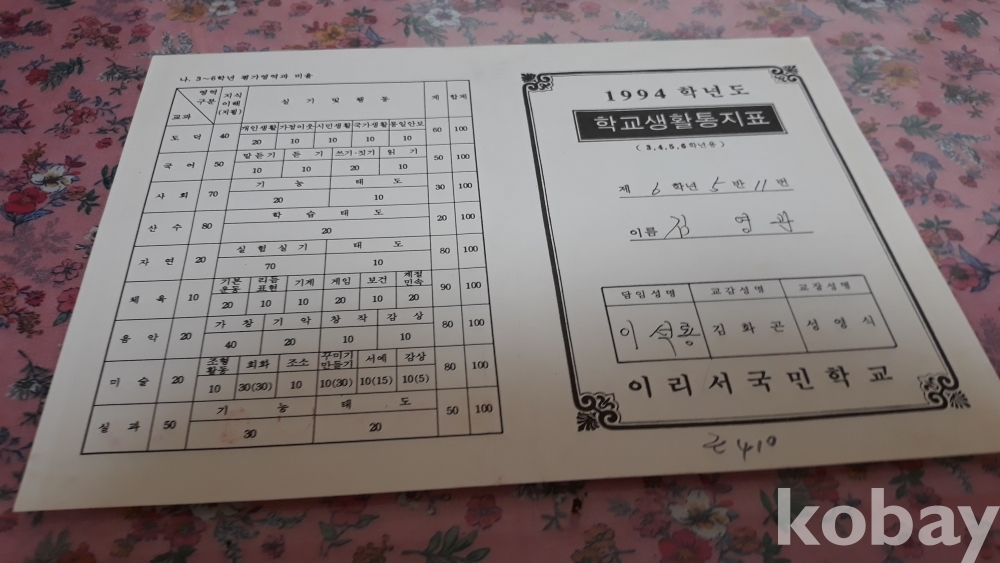 나. 3~6학년 평가영역과 비율
영역 구분 교과 지식 이해 (지필) 실 기 및 행 동 계 합계
도 덕 40 개인생활 가정이웃 시민생활 국가생활 통일안보 60 100
20 10 10 10 10
국 어 50 말듣기 듣 기 쓰기·짓기 읽 기 50 100
10 10 20 10
사 회 70 기 능 태 도 30 100
20 10
산 수 80 학 습 태 도 20 100
20
자 연 20 실 험 실 기 태 도 80 100
70 10
체 육 10 기본운동 리듬표현 기계 게임 보건 계절민속 90 100
20 10 10 20 10 20
음 악 20 가 창 기 악 창 작 감 상 80 100
40 20 10 10
미 술 20 조형활동 회화 조소 꾸미기만들기 서예 감상 80 100
10 30(30) 10 10(30) 10(15) 10(5)
실 과 50 기 능 태 도 50 100
30 20
1994 학년도
학교생활통지표
(3,4,5,6학년용)
제 6 학년 5 반 11 번
이름 김 영 관
담임성명 교감성명 교장성명
이 석룡 김 화 곤 성 영 식
이리서국민학교
410
kobay